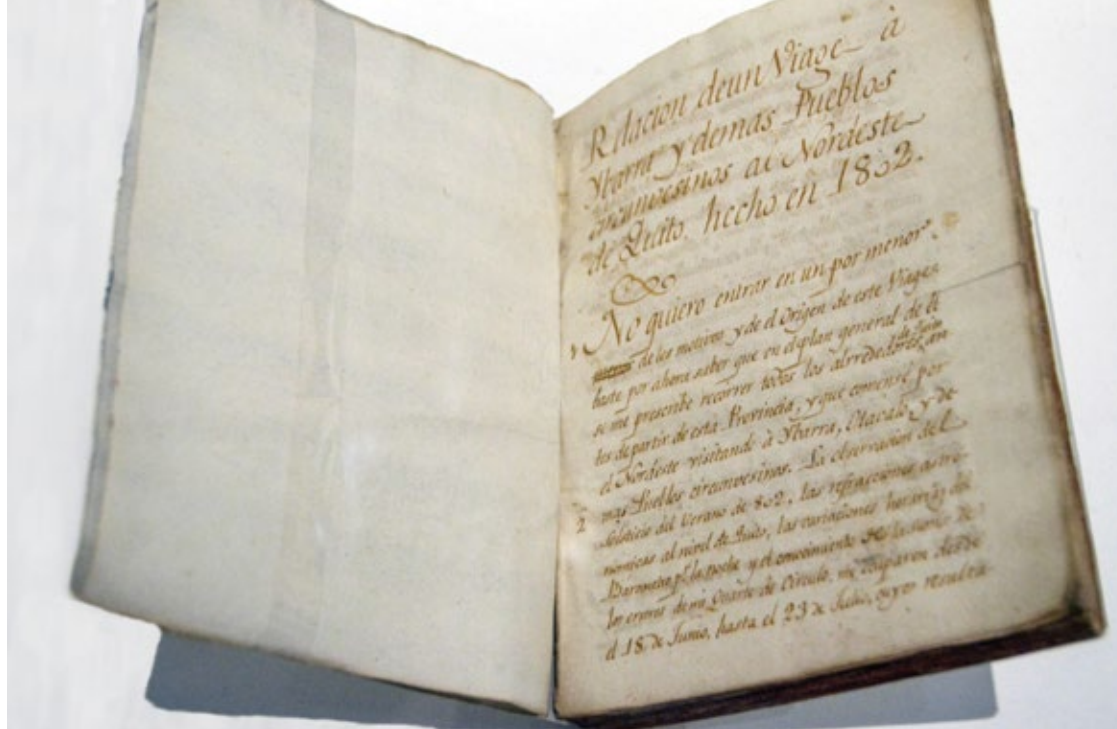 Relacion de un Viage à
Ybarra y demas Pueblos
circunvesinos al Nordeste
de Quito, hecho en 1802.
No quiero entrar en un por menor
de los motivos y de el Origen de este Viage
basta por ahora saber que en el plan general de él
se me prescribe recorrer todos los alrrededores an
de Quito
tes de partir de esta Provincia, y que comensé por
el Nordeste visitando à Ybarra, Otavalo y de
mas Pueblos circunvesinos. La observacion del
2
solsticio del Verano de 802, las refracciones astro
nomicas al nivel de Quito, las variaciones horarias del
Barometro pr. la noche y el conocimiento
los errores de mi Quarto de Circulo, me ocuparon desde
el 18 de Junio, hasta el 23 de Julio, cuyos resulta